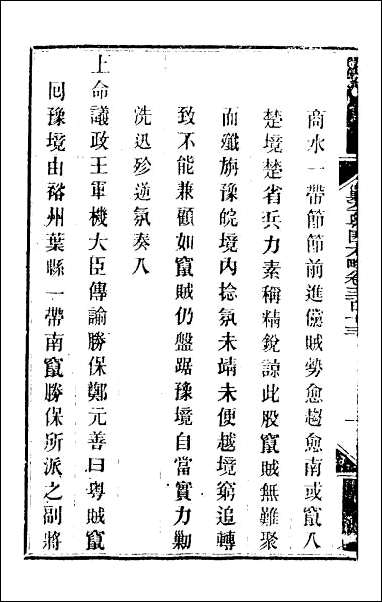 商水一帶節節前進儻賊勢愈趨愈南或竄入
楚境楚省兵力素稱精銳諒此股竄賊無難聚
而殲旃豫皖境內捻氛未靖未便越境窮追轉
致不能兼顧如竄賊仍盤踞豫境自當實力勦
洗迅殄逆氛奏入
上命議政王軍機大臣傳諭勝保鄭元善曰粵賊竄
囘豫境由裕州葉縣一帶南竄勝保所派之副將